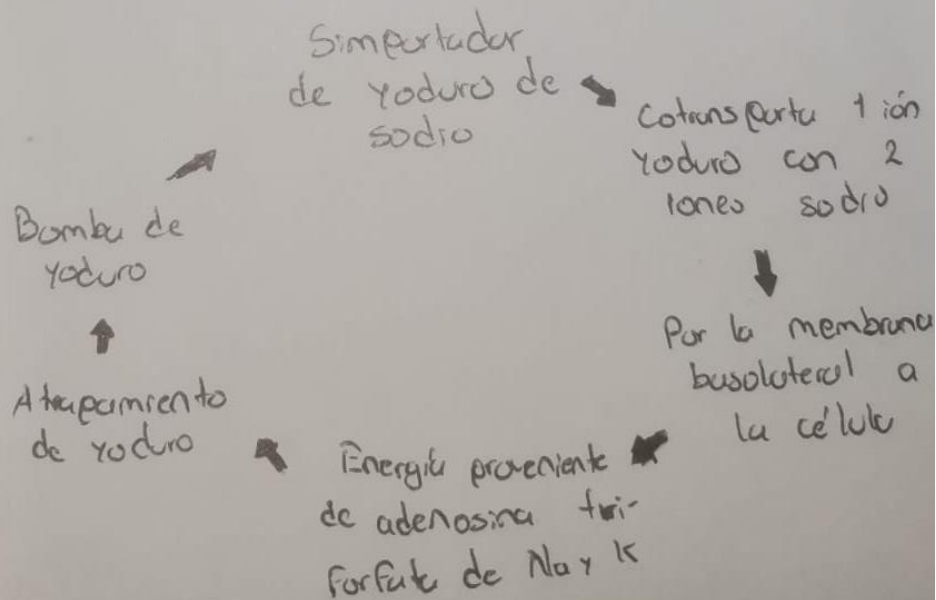 Simportador
de yoduro de
sodio
Cotransporta 1 ión
yoduro con 2
iones sodio
Por la membrana
basolateral a
la célula
Energía proveniente
de adenosina tri-
forfato de Na y K
Atrapamiento
de yoduro
Bomba de
yoduro